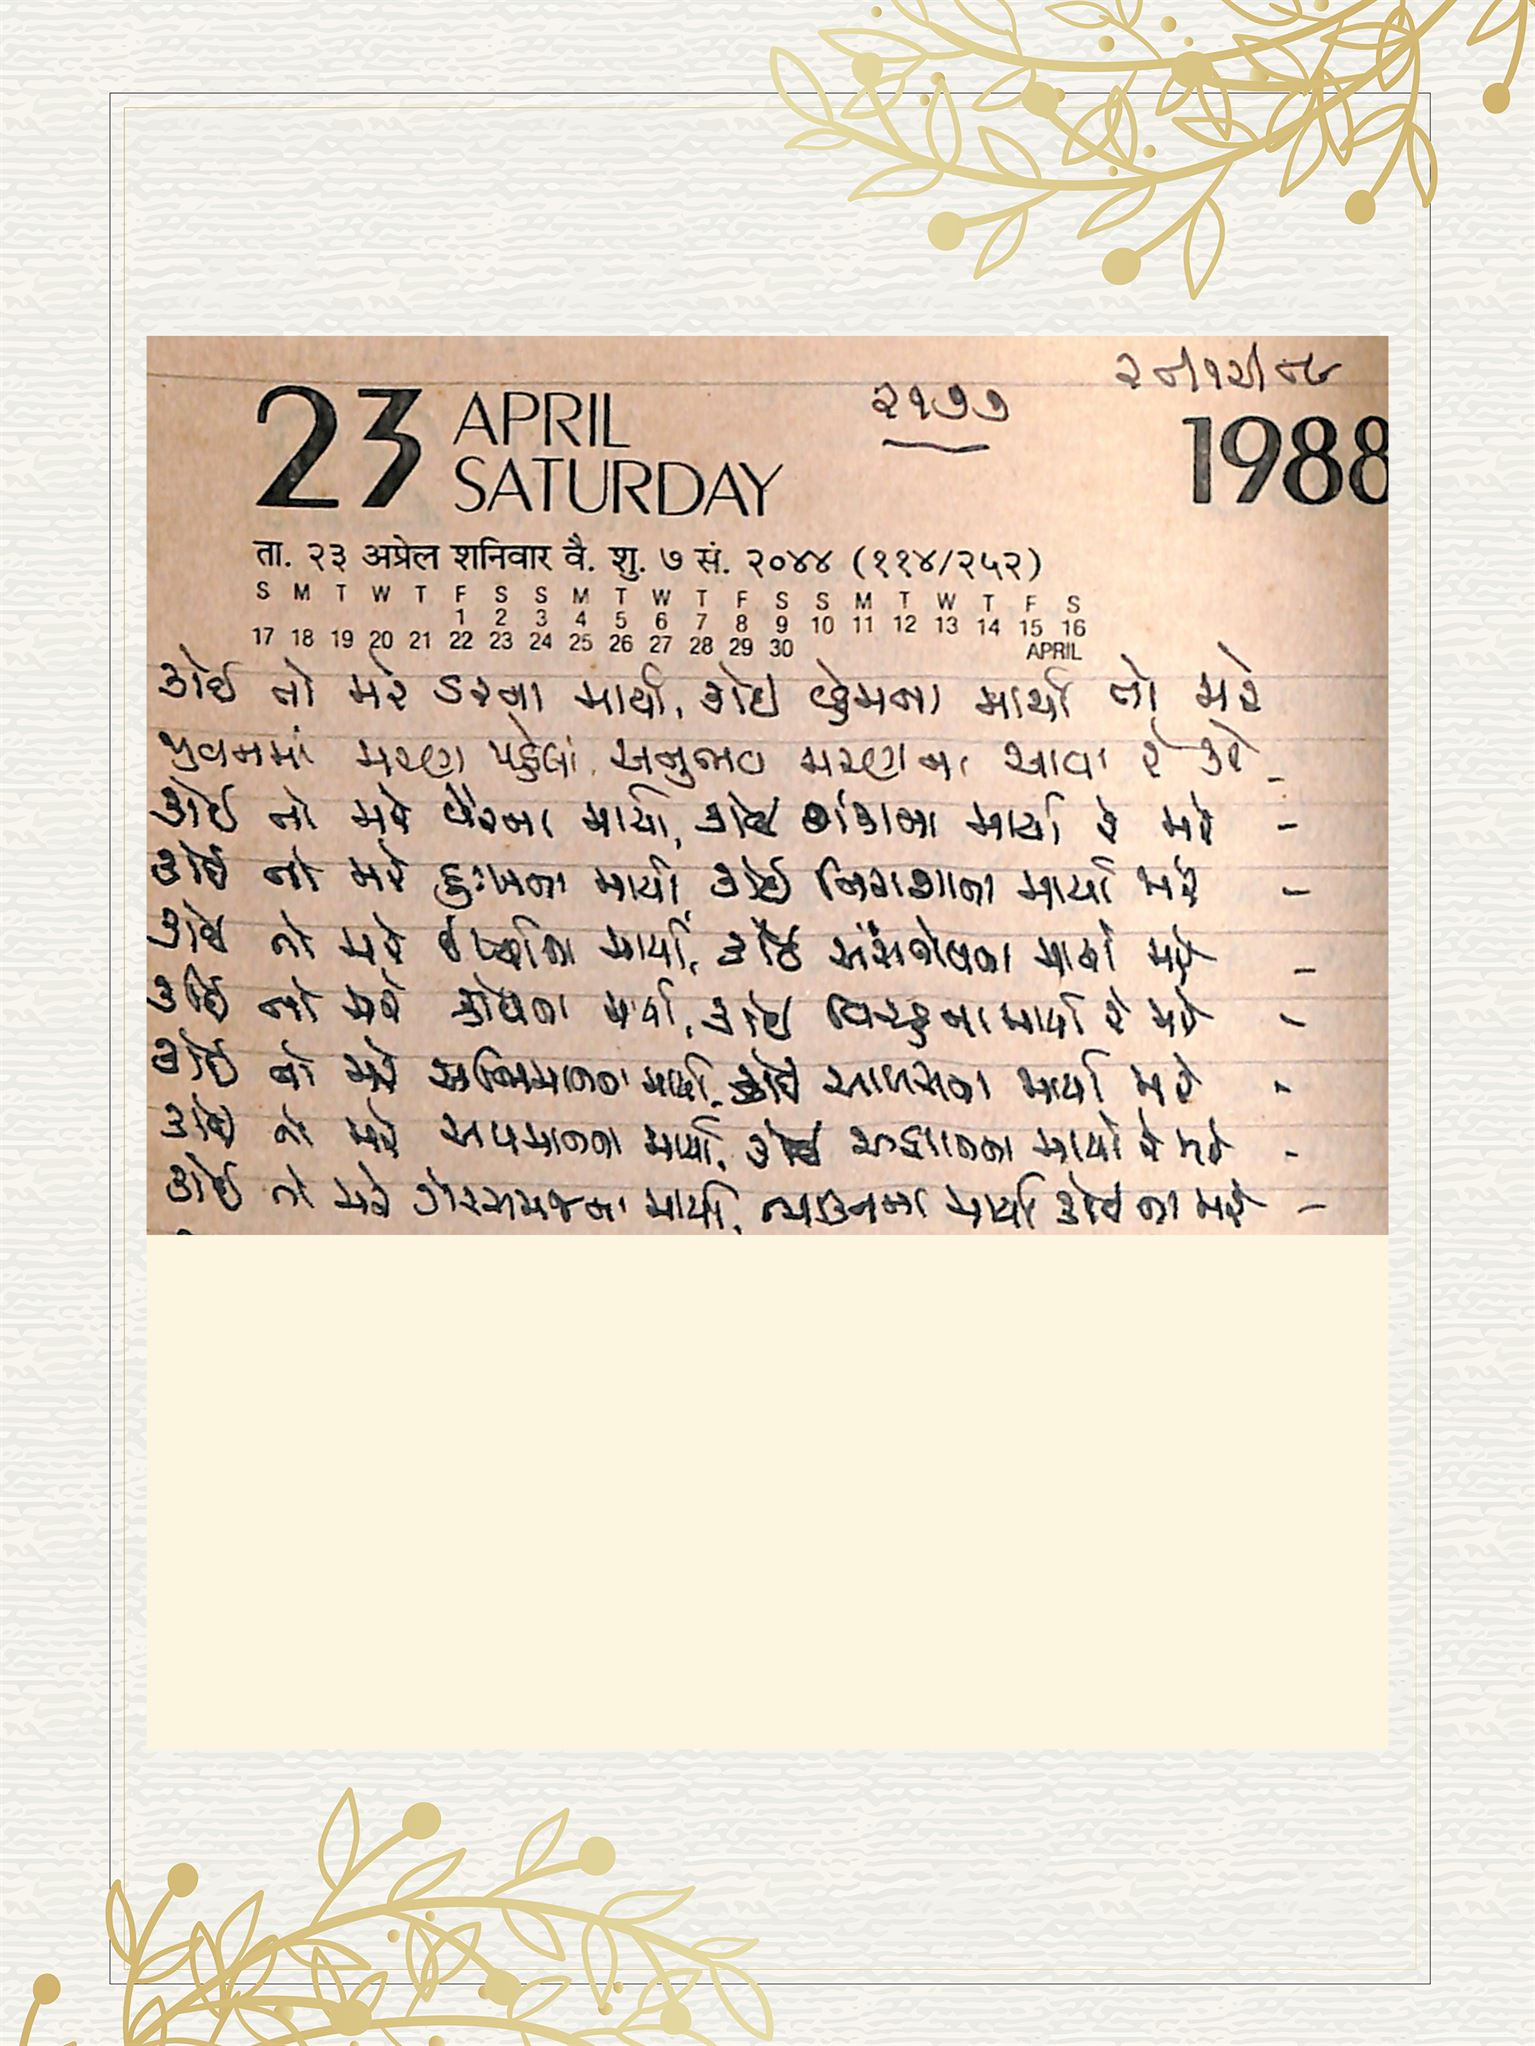 23 APRIL 1988
SATURDAY
૨૧૭૭
ता. २३ अप्रेल शनिवार वै. शु. ७ सं. २०४४ (११४/२५२)
S M T W T F S S M T W T F S S M T W T F S
1 2 3 4 5 6 7 8 9 10 11 12 13 14 15 16
17 18 19 20 21 22 23 24 25 26 27 28 29 30 APRIL
કોઈ તો મરે ડરના માર્યા, કોઈ પ્રેમના માર્યા તો મરે
જીવનમાં મરણ પહેલાં અનુભવ મરણના આવા રે કરે -
કોઈ તો મરે વૈરના માર્યા, કોઈ શંકાના માર્યા રે મરે -
કોઈ તો મરે દુઃખના માર્યા, કોઈ નિરાશાના માર્યા મરે -
કોઈ તો મરે ઈર્ષ્યાના માર્યા, કોઈ માર્યા મરે -
કોઈ તો મરે ક્રોધના માર્યા, કોઈ વિરહના માર્યા રે મરે -
કોઈ તો મરે અભિમાનના માર્યા, કોઈ આળસના માર્યા મરે -
કોઈ તો મરે અપમાનના માર્યા, કોઈ અજ્ઞાનના માર્યા રે મરે -
કોઈ તો મરે ગેરસમજના માર્યા, માર્યા કોઈ ના મરે -